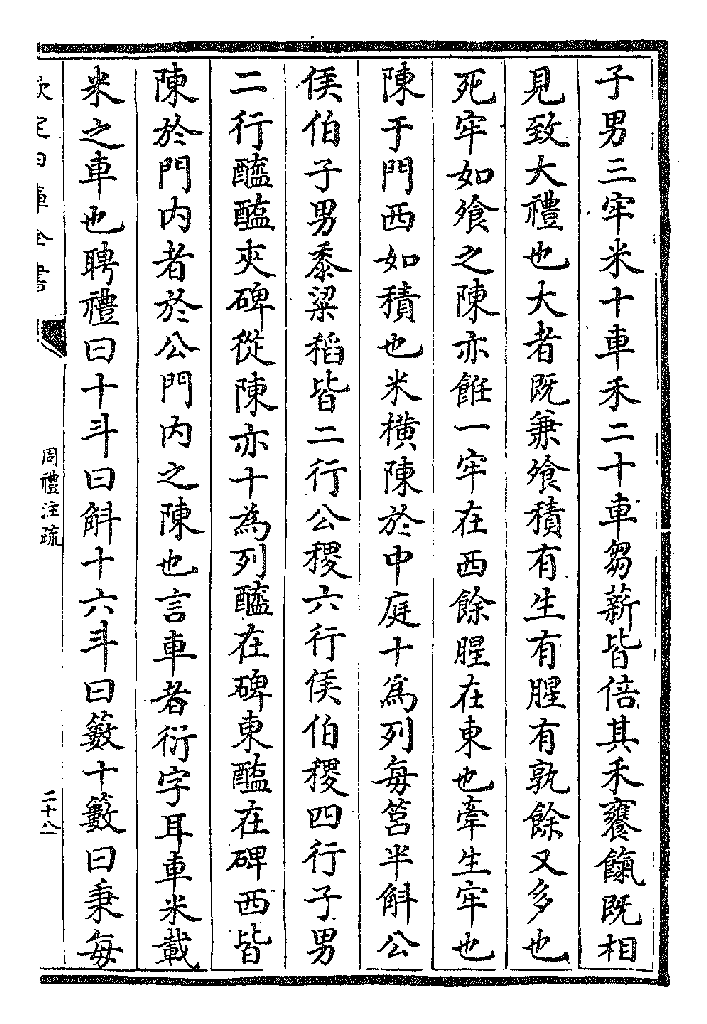 子男三牢米十車禾二十車芻薪皆倍其禾饔餼既相
見致大禮也大者既兼飧積有生有腥有孰餘又多也
死牢如飧之陳亦飪一牢在西餘腥在東也牽生牢也
陳于門西如積也米横陳於中庭十為列每筥半斛公
侯伯子男黍粱稻皆二行公稷六行侯伯稷四行子男
二行醯醢夾碑從陳亦十為列醢在碑東醯在碑西皆
陳於門内者於公門内之陳也言車者衍字耳車米載
米之車也聘禮曰十斗曰斛十六斗曰籔十籔曰秉每
欽定四庫全書
周禮注疏
二十八